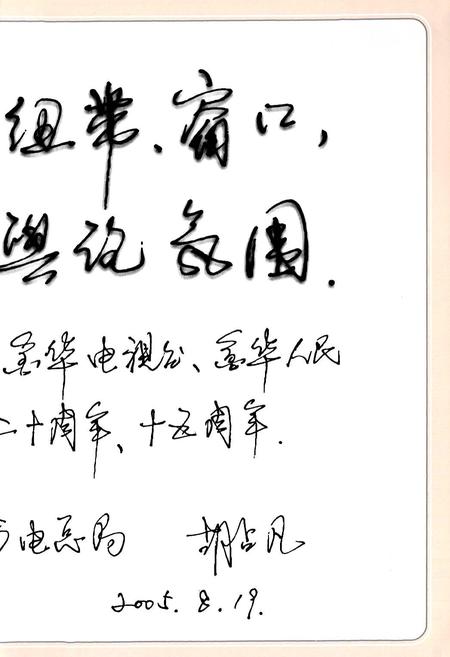 纽带、窗口，
舆论氛围.
金华电视台、金华人民
二十周年、十五周年.
电总局 胡占凡
2005. 8. 19.